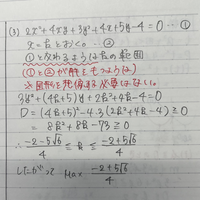 (3) 2x²+4xy+3y²+4x+5y-4=0 …①
x=kとおく。…②
①と交わるようなkの範囲
(①と②が解をもつように)
※図形を把握する必要はない。
3y²+(4k+5)y+2k²+4k-4=0
D=(4k+5)²-4・3(2k²+4k-4)≧0
= 8k²+8k-73≧0
∴ -2-5√6/4 ≦ k ≦ -2+5√6/4
したがって Max -2+5√6/4